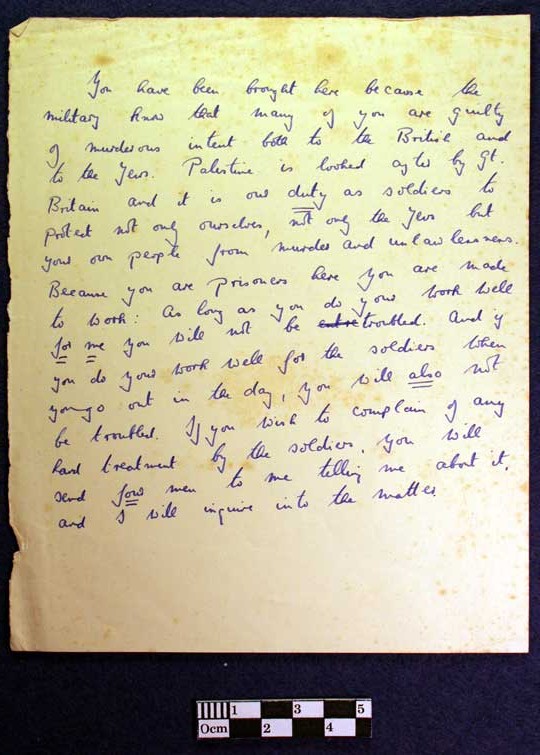 You have been brought here because the
military know that many of you are guilty
of murderous intent both to the British and
to the Jews. Palestine is looked after by Gt.
Britain and it is our duty as soldiers to
protect not only ourselves, not only the Jews but
your own people from murder and unlawlessness.
Because you are prisoners here you are made
to work: As long as you do your work well
for me you will not be troubled. And if
you do your work well for the soldiers when
you go out in the day, you will also not
be troubled. If you wish to complain of any
hard treatment by the soldiers, you will
send four men to me telling me about it,
and I will inquire into the matter
0cm 1 2 3 4 5